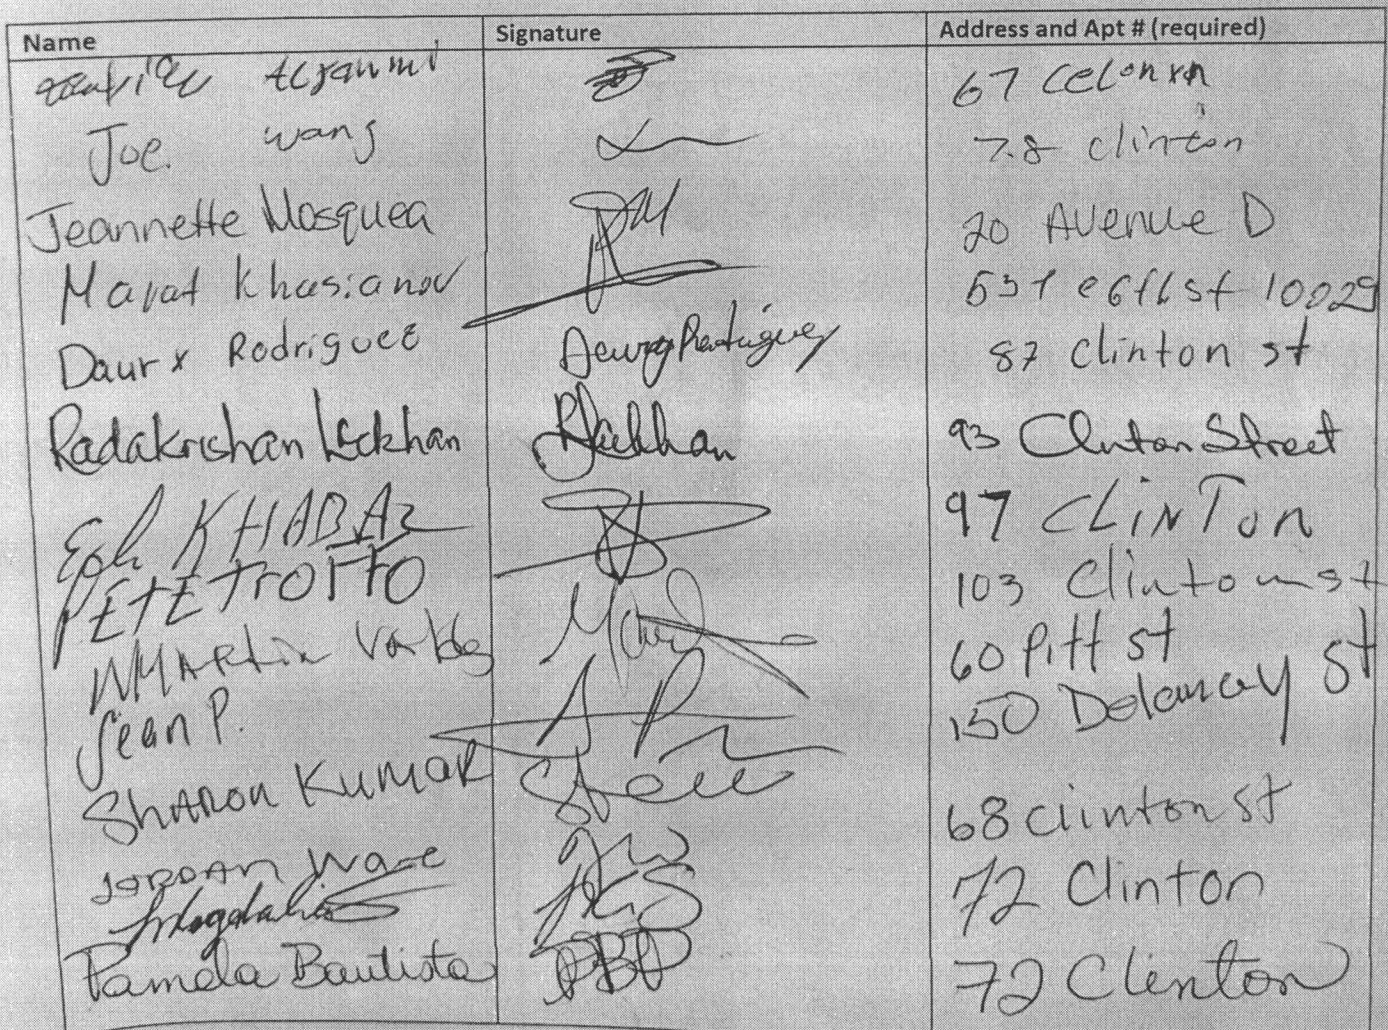 Name Signature Address and Apt # (required)
67
Joe wang 78 clinton
Jeannette Mosquea JM 20 AVENUE D
Marat Khasianov 10029
Rodriguez Rodriguez 87 Clinton st
Radakrishan Lakhan RLakhan 93 Clinton Street
KHABAZ 97 CLINTON
PETE TROTTO 103 Clinton st
MARtin Valdes 60 Pitt st
Sean P. 150 Delancey st
SHARON KUMAR 68 clinton st
JORDAN Ware 72 Clinton
Magdalis
Pamela Bautista PB 72 Clinton